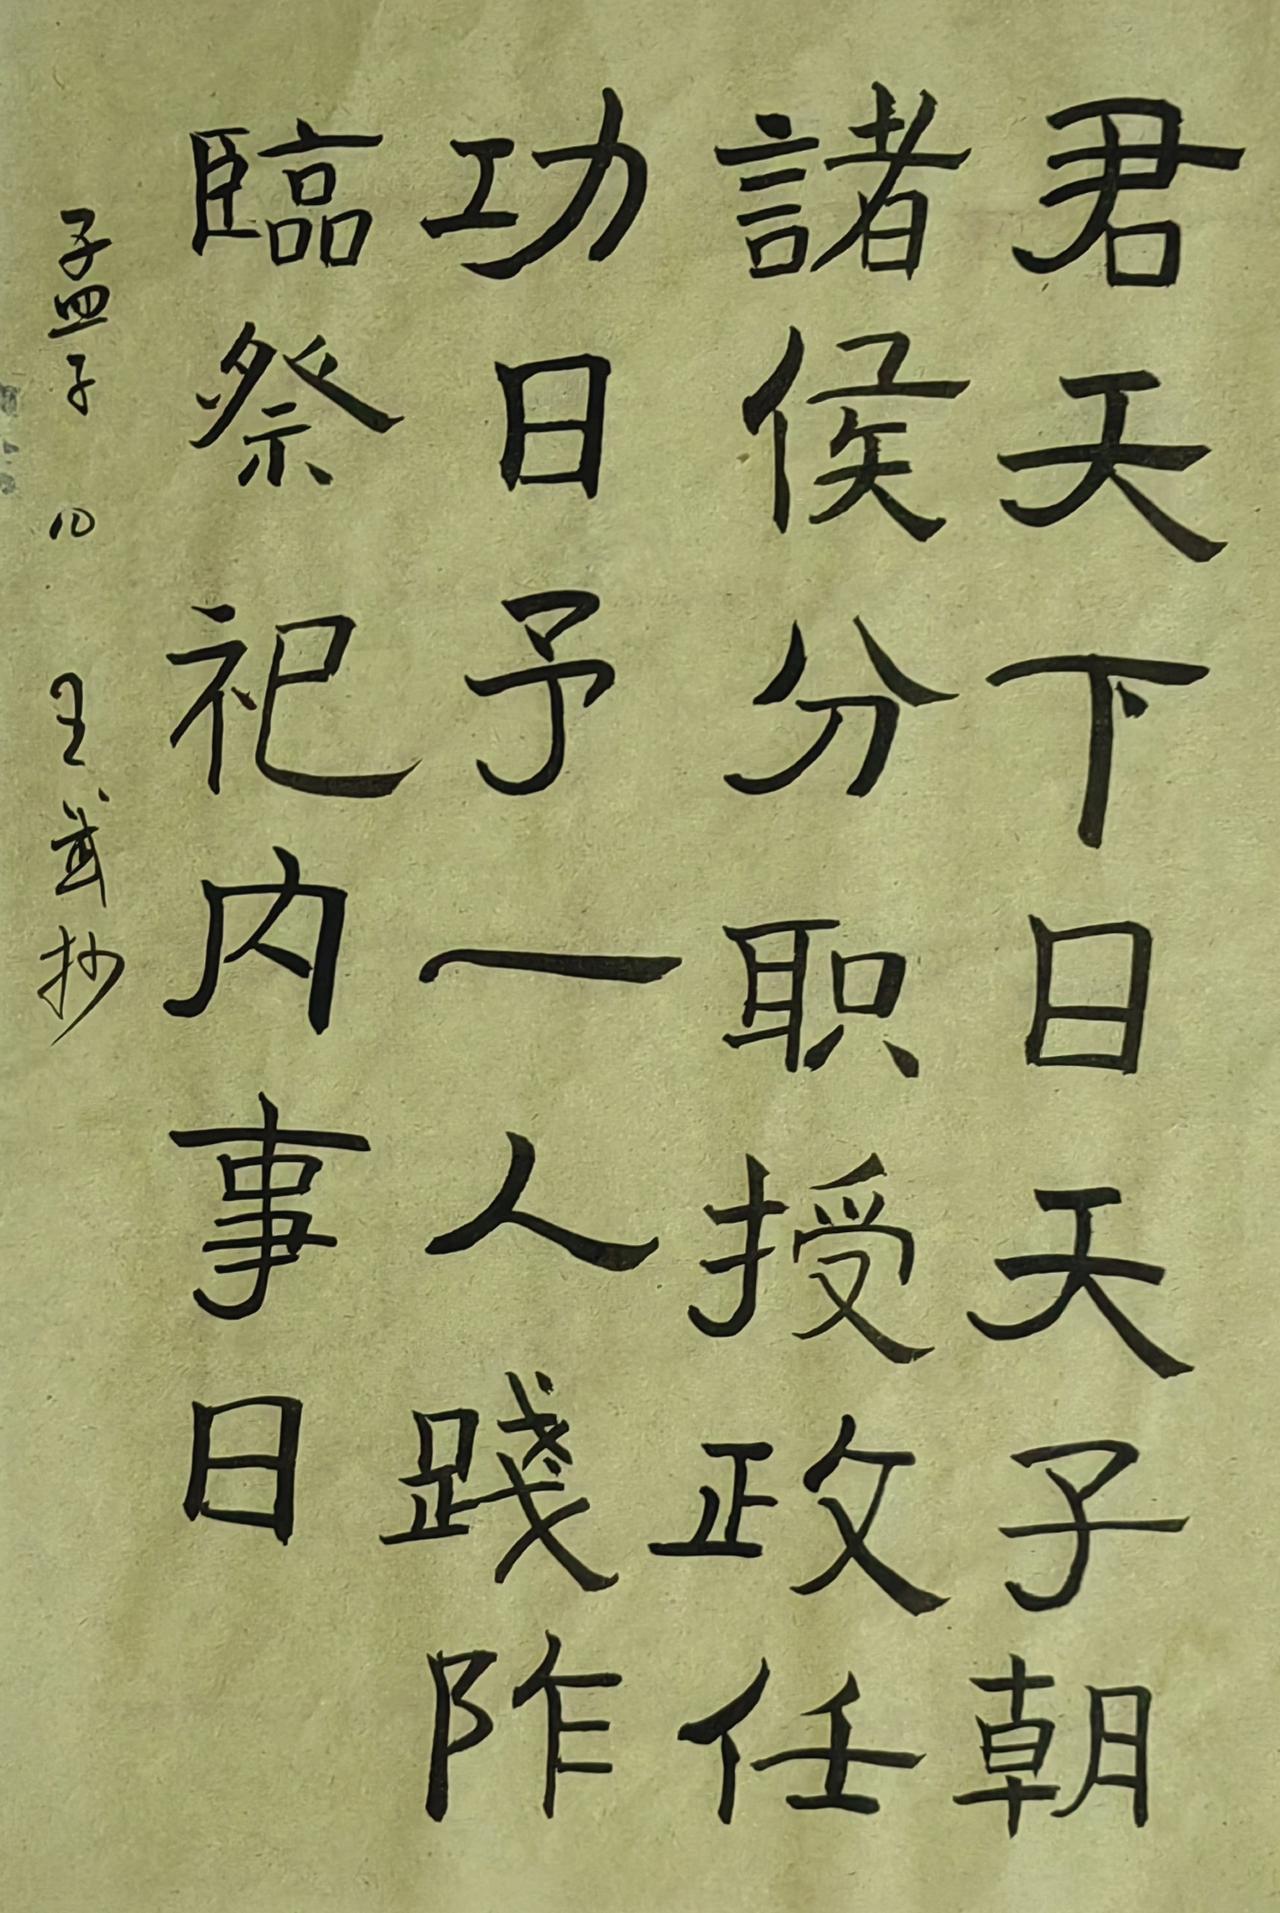 君天下日天子朝
諸侯分职授政任
功日予一人踐阼
臨祭祀内事日
孟子 10 王武抄